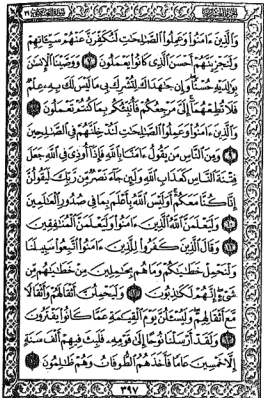 وَالَّذِينَ ءَامَنُوا وَعَمِلُوا الصَّٰلِحَٰتِ لَنُكَفِّرَنَّ عَنْهُمْ سَيِّـَٔاتِهِمْ
وَلَنَجْزِيَنَّهُمْ أَحْسَنَ الَّذِي كَانُوا يَعْمَلُونَ ٧ وَوَصَّيْنَا الْإِنسَٰنَ
بِوَٰلِدَيْهِ حُسْنًا وَإِن جَٰهَدَاكَ لِتُشْرِكَ بِي مَا لَيْسَ لَكَ بِهِ عِلْمٌ
فَلَا تُطِعْهُمَا إِلَيَّ مَرْجِعُكُمْ فَأُنَبِّئُكُم بِمَا كُنتُمْ تَعْمَلُونَ ٨
وَالَّذِينَ ءَامَنُوا وَعَمِلُوا الصَّٰلِحَٰتِ لَنُدْخِلَنَّهُمْ فِي الصَّٰلِحِينَ
٩ وَمِنَ النَّاسِ مَن يَقُولُ ءَامَنَّا بِاللَّهِ فَإِذَا أُوذِيَ فِي اللَّهِ جَعَلَ
فِتْنَةَ النَّاسِ كَعَذَابِ اللَّهِ وَلَئِن جَاءَ نَصْرٌ مِّن رَّبِّكَ لَيَقُولُنَّ
إِنَّا كُنَّا مَعَكُمْ أَوَلَيْسَ اللَّهُ بِأَعْلَمَ بِمَا فِي صُدُورِ الْعَٰلَمِينَ
١٠ وَلَيَعْلَمَنَّ اللَّهُ الَّذِينَ ءَامَنُوا وَلَيَعْلَمَنَّ الْمُنَٰفِقِينَ
١١ وَقَالَ الَّذِينَ كَفَرُوا لِلَّذِينَ ءَامَنُوا اتَّبِعُوا سَبِيلَنَا
وَلْنَحْمِلْ خَطَٰيَٰكُمْ وَمَا هُم بِحَٰمِلِينَ مِنْ خَطَٰيَٰهُم مِّن
شَيْءٍ إِنَّهُمْ لَكَٰذِبُونَ ١٢ وَلَيَحْمِلُنَّ أَثْقَالَهُمْ وَأَثْقَالًا
مَّعَ أَثْقَالِهِمْ وَلَيُسْـَٔلُنَّ يَوْمَ الْقِيَٰمَةِ عَمَّا كَانُوا يَفْتَرُونَ
١٣ وَلَقَدْ أَرْسَلْنَا نُوحًا إِلَىٰ قَوْمِهِ فَلَبِثَ فِيهِمْ أَلْفَ سَنَةٍ
إِلَّا خَمْسِينَ عَامًا فَأَخَذَهُمُ الطُّوفَانُ وَهُمْ ظَٰلِمُونَ ١٤
٣٩٧